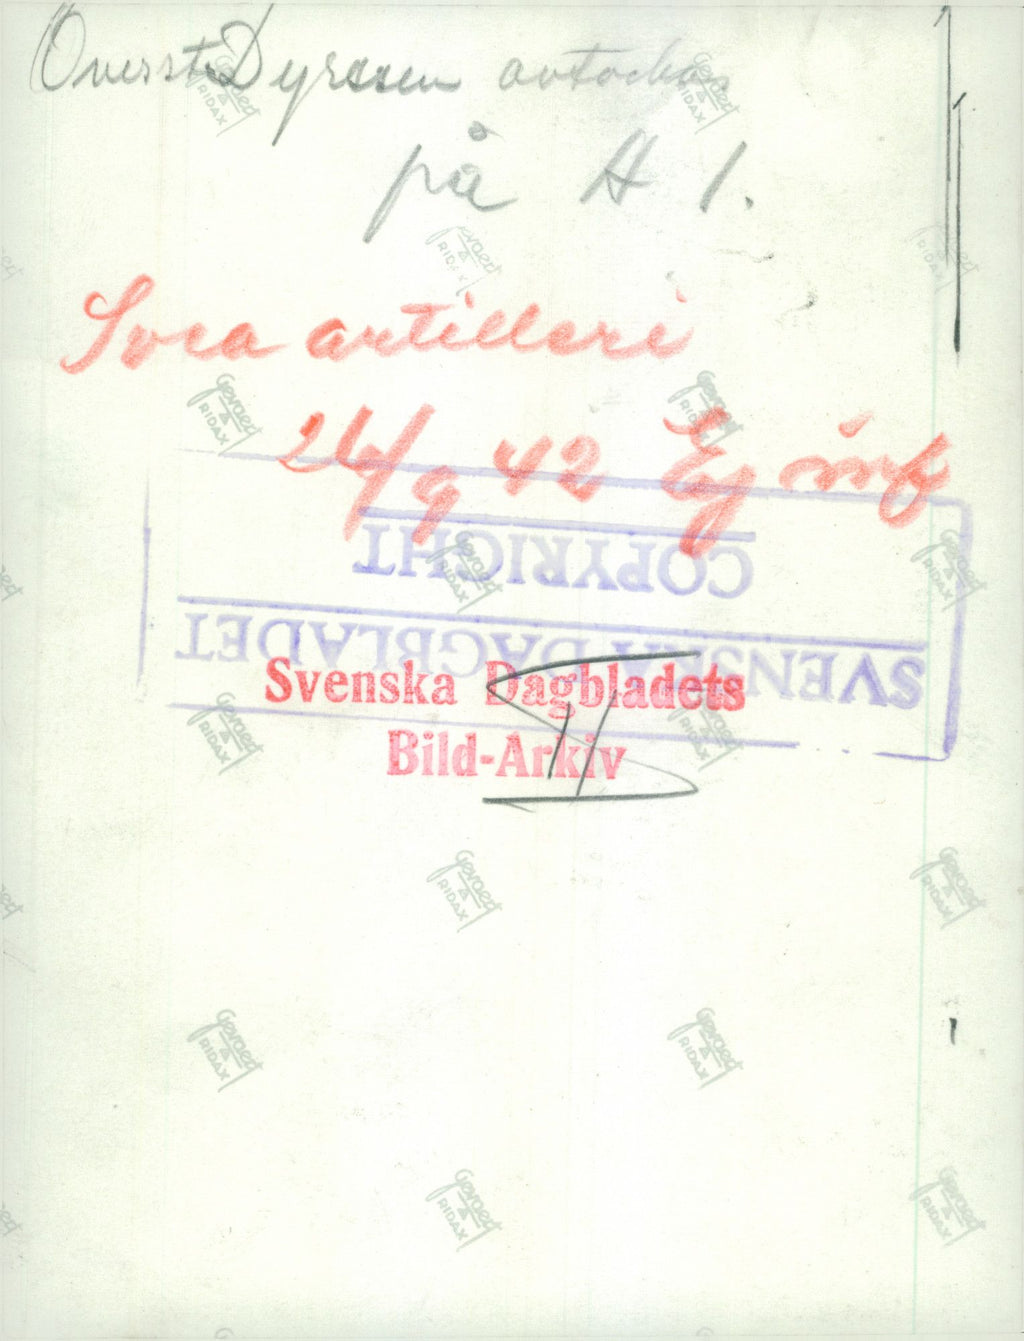 Överste Dyrssen avtackas
på A 1.
Svea artilleri
26/9 42 Ej inf
COPYRIGHT
SVENSKA DAGBLADET
Svenska Dagbladets
Bild-Arkiv
Gevaert
RIDAX